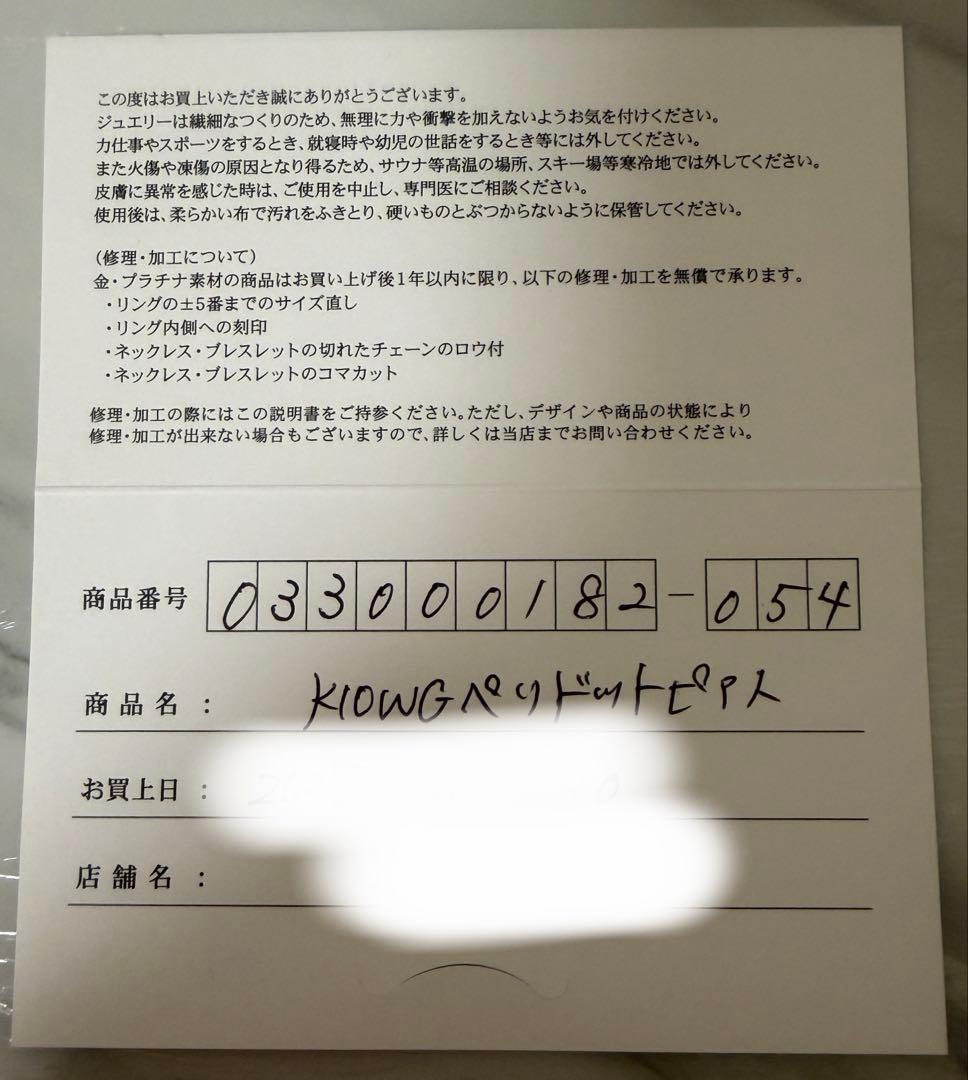 この度はお買上いただき誠にありがとうございます。
ジュエリーは繊細なつくりのため、無理に力や衝撃を加えないようお気を付けください。
力仕事やスポーツをするとき、就寝時や幼児の世話をするとき等には外してください。
また火傷や凍傷の原因となり得るため、サウナ等高温の場所、スキー場等寒冷地では外してください。
皮膚に異常を感じた時は、ご使用を中止し、専門医にご相談ください。
使用後は、柔らかい布で汚れをふきとり、硬いものとぶつからないように保管してください。
（修理・加工について）
金・プラチナ素材の商品はお買い上げ後1年以内に限り、以下の修理・加工を無償で承ります。
・リングの±5番までのサイズ直し
・リング内側への刻印
・ネックレス・ブレスレットの切れたチェーンのロウ付
・ネックレス・ブレスレットのコマカット
修理・加工の際にはこの説明書をご持参ください。ただし、デザインや商品の状態により
修理・加工が出来ない場合もございますので、詳しくは当店までお問い合わせください。
商品番号 033000182-054
商品名： K10WGペリドットピアス
お買上日：
店舗名：